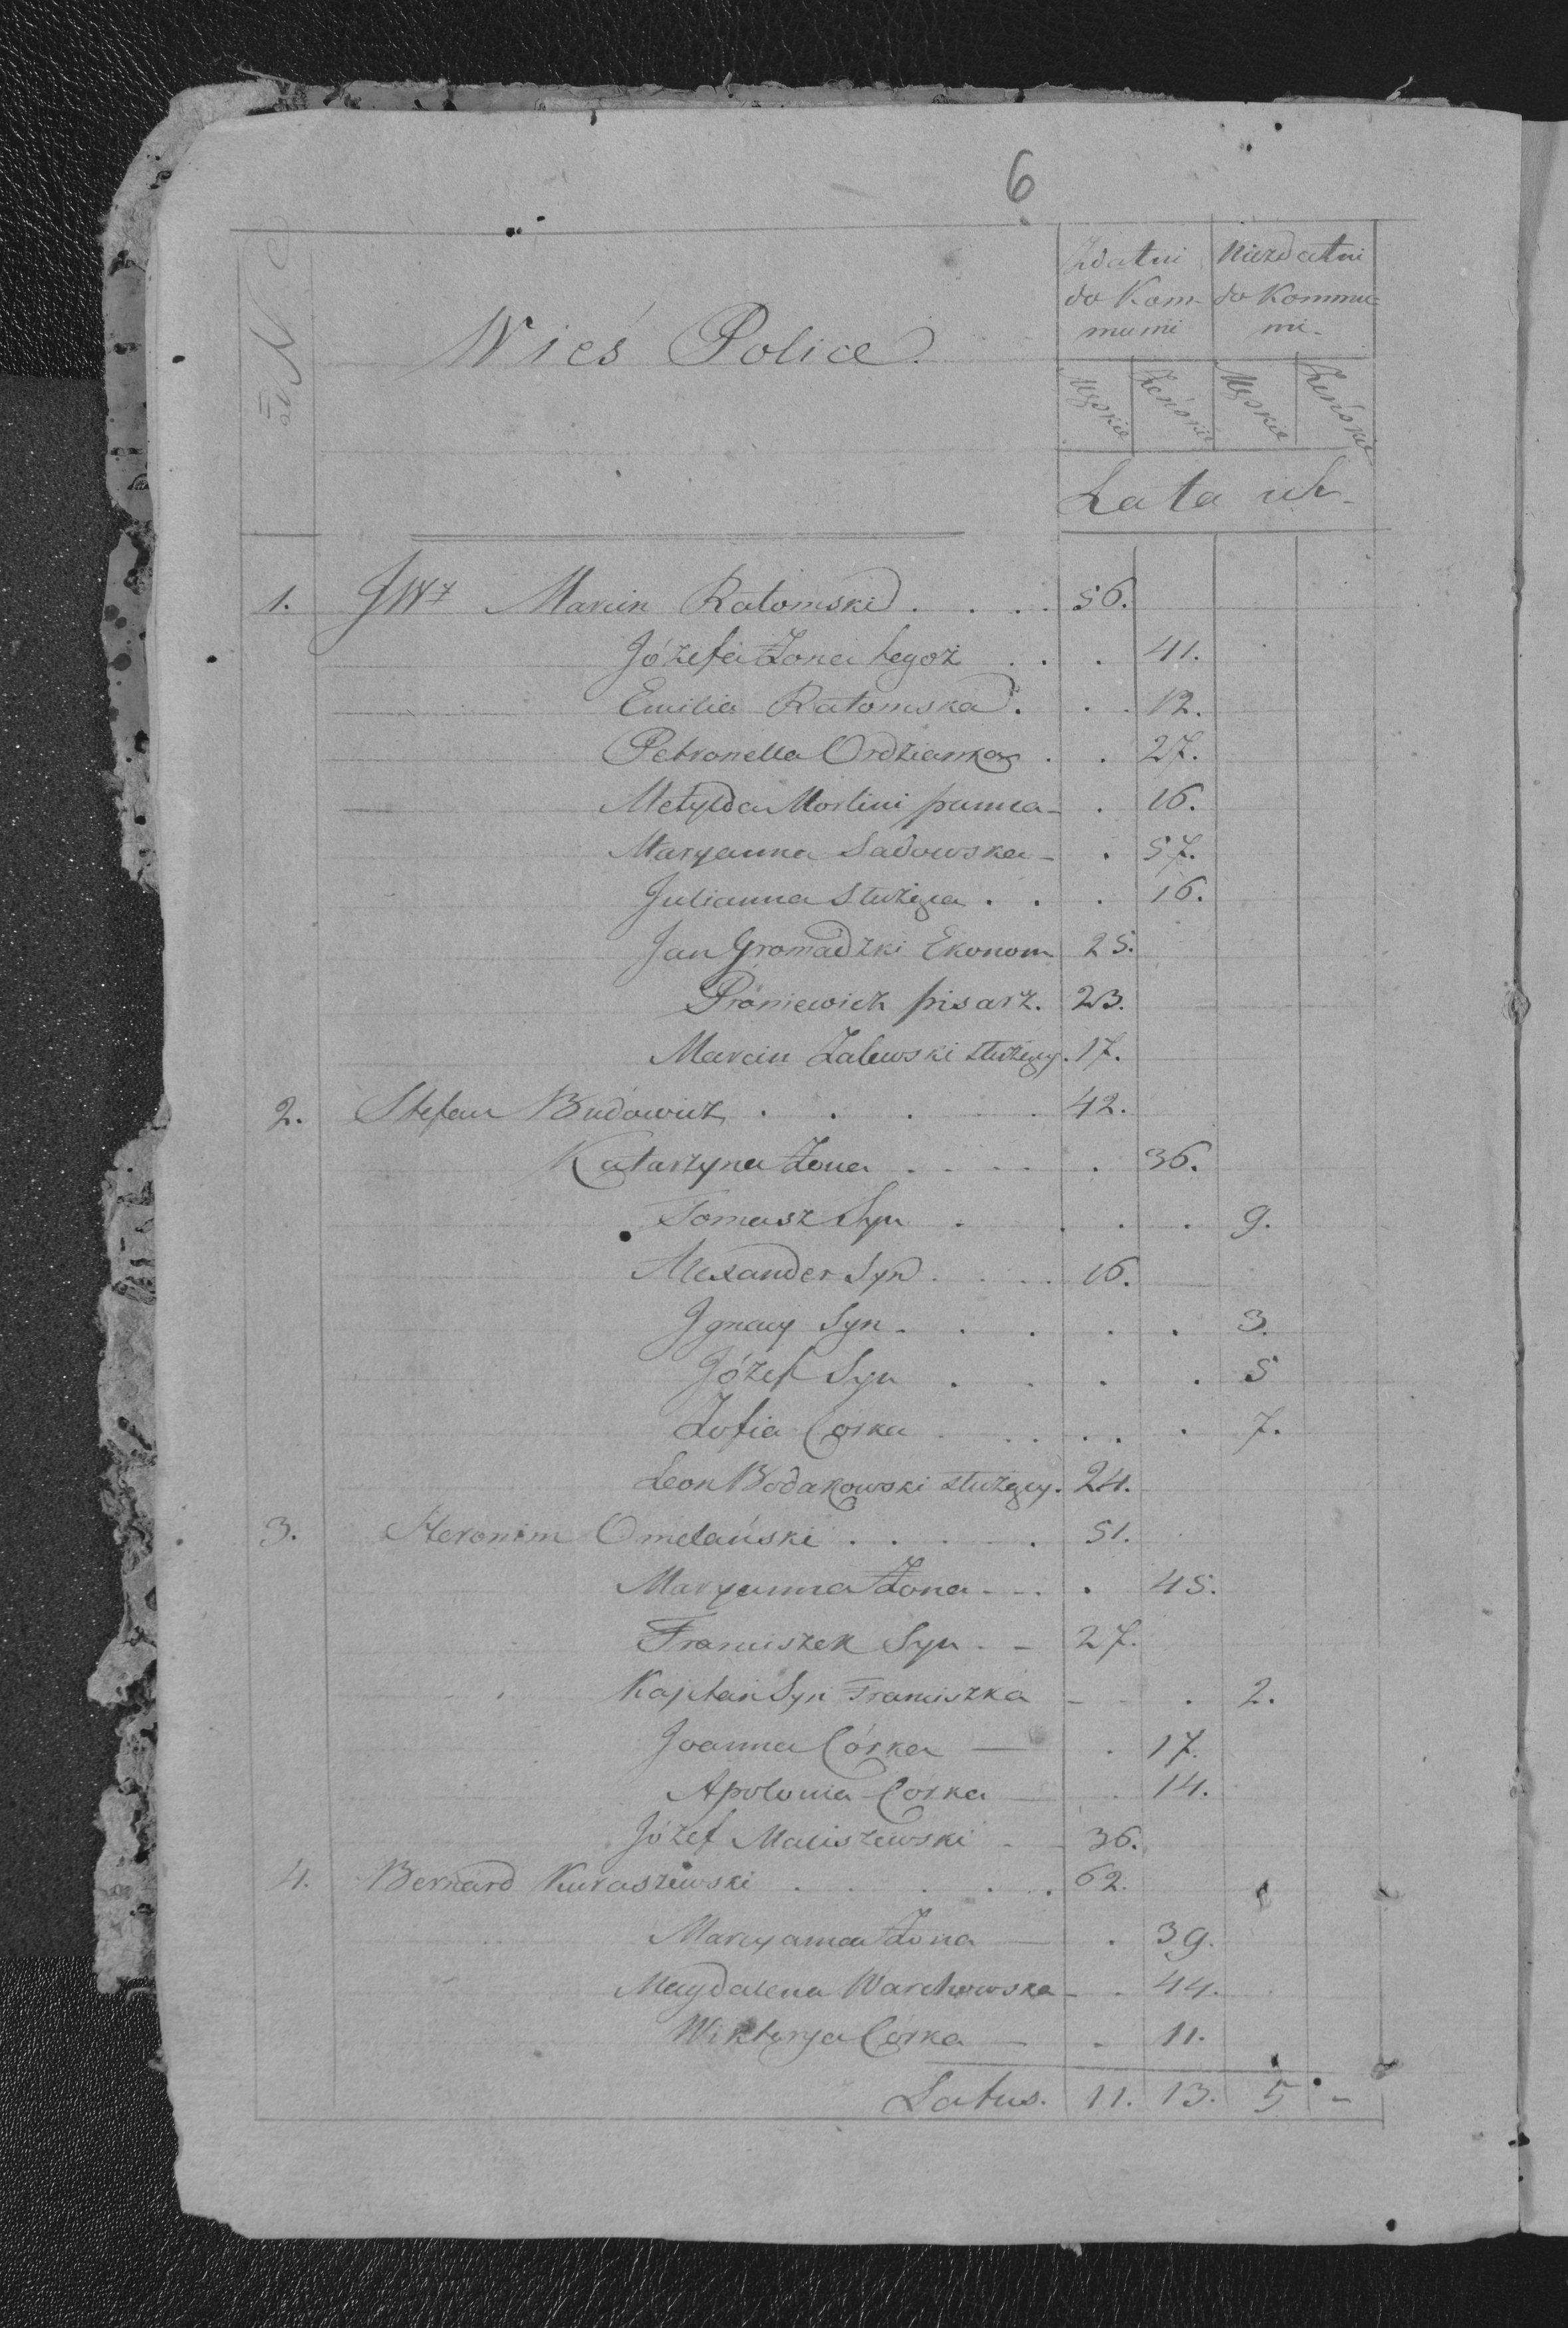 6
No
Wieś Police.
Zdatni do Kommunii
Niezdatni do Kommunii-
Męskie Żeńskie Męskie Żeńskie
Lata ich-
1. JWż Marcin Ratomski . . . . 56.
Józefa Żona tegoż . . . 41.
Emilia Ratomska . . . 12.
Petronella Ordzianka . . 27.
Metylda Mortini panna - . 16.
Maryanna Sadowska - . 57.
Julianna Służąca . . . 16.
Jan Gromadzki Ekonom 25.
Proniewicz pisarz. 23.
Marcin Zalewski służący. 17.
2. Stefan Budowicz . . . . . 42.
Katarzyna Żona . . . . . 36.
Tomasz Syn . . . . 9.
Alexander Syn . . . . 16.
Ignacy Syn . . . . . 3.
Józef Syn . . . . 5
Zofia Corka . . . . . 7.
Leon Bodakowski służący. 24.
3. Heronim Omelański . . . . . 51.
Maryanna Żona - - . . 45.
Franciszek Syn . - 27.
Kajetan Syn Franciszka - - . 2.
Joanna Córka — . 17.
Apolonia Corka — . 14.
Józef Maliszewski - - 36.
4. Bernard Kuraszewski . . . . . 62.
Maryanna Żona — . 39.
Magdalena Warchowska - . 44.
Wiktorya Córka — - 11.
Latus. 11. 13. 5 -